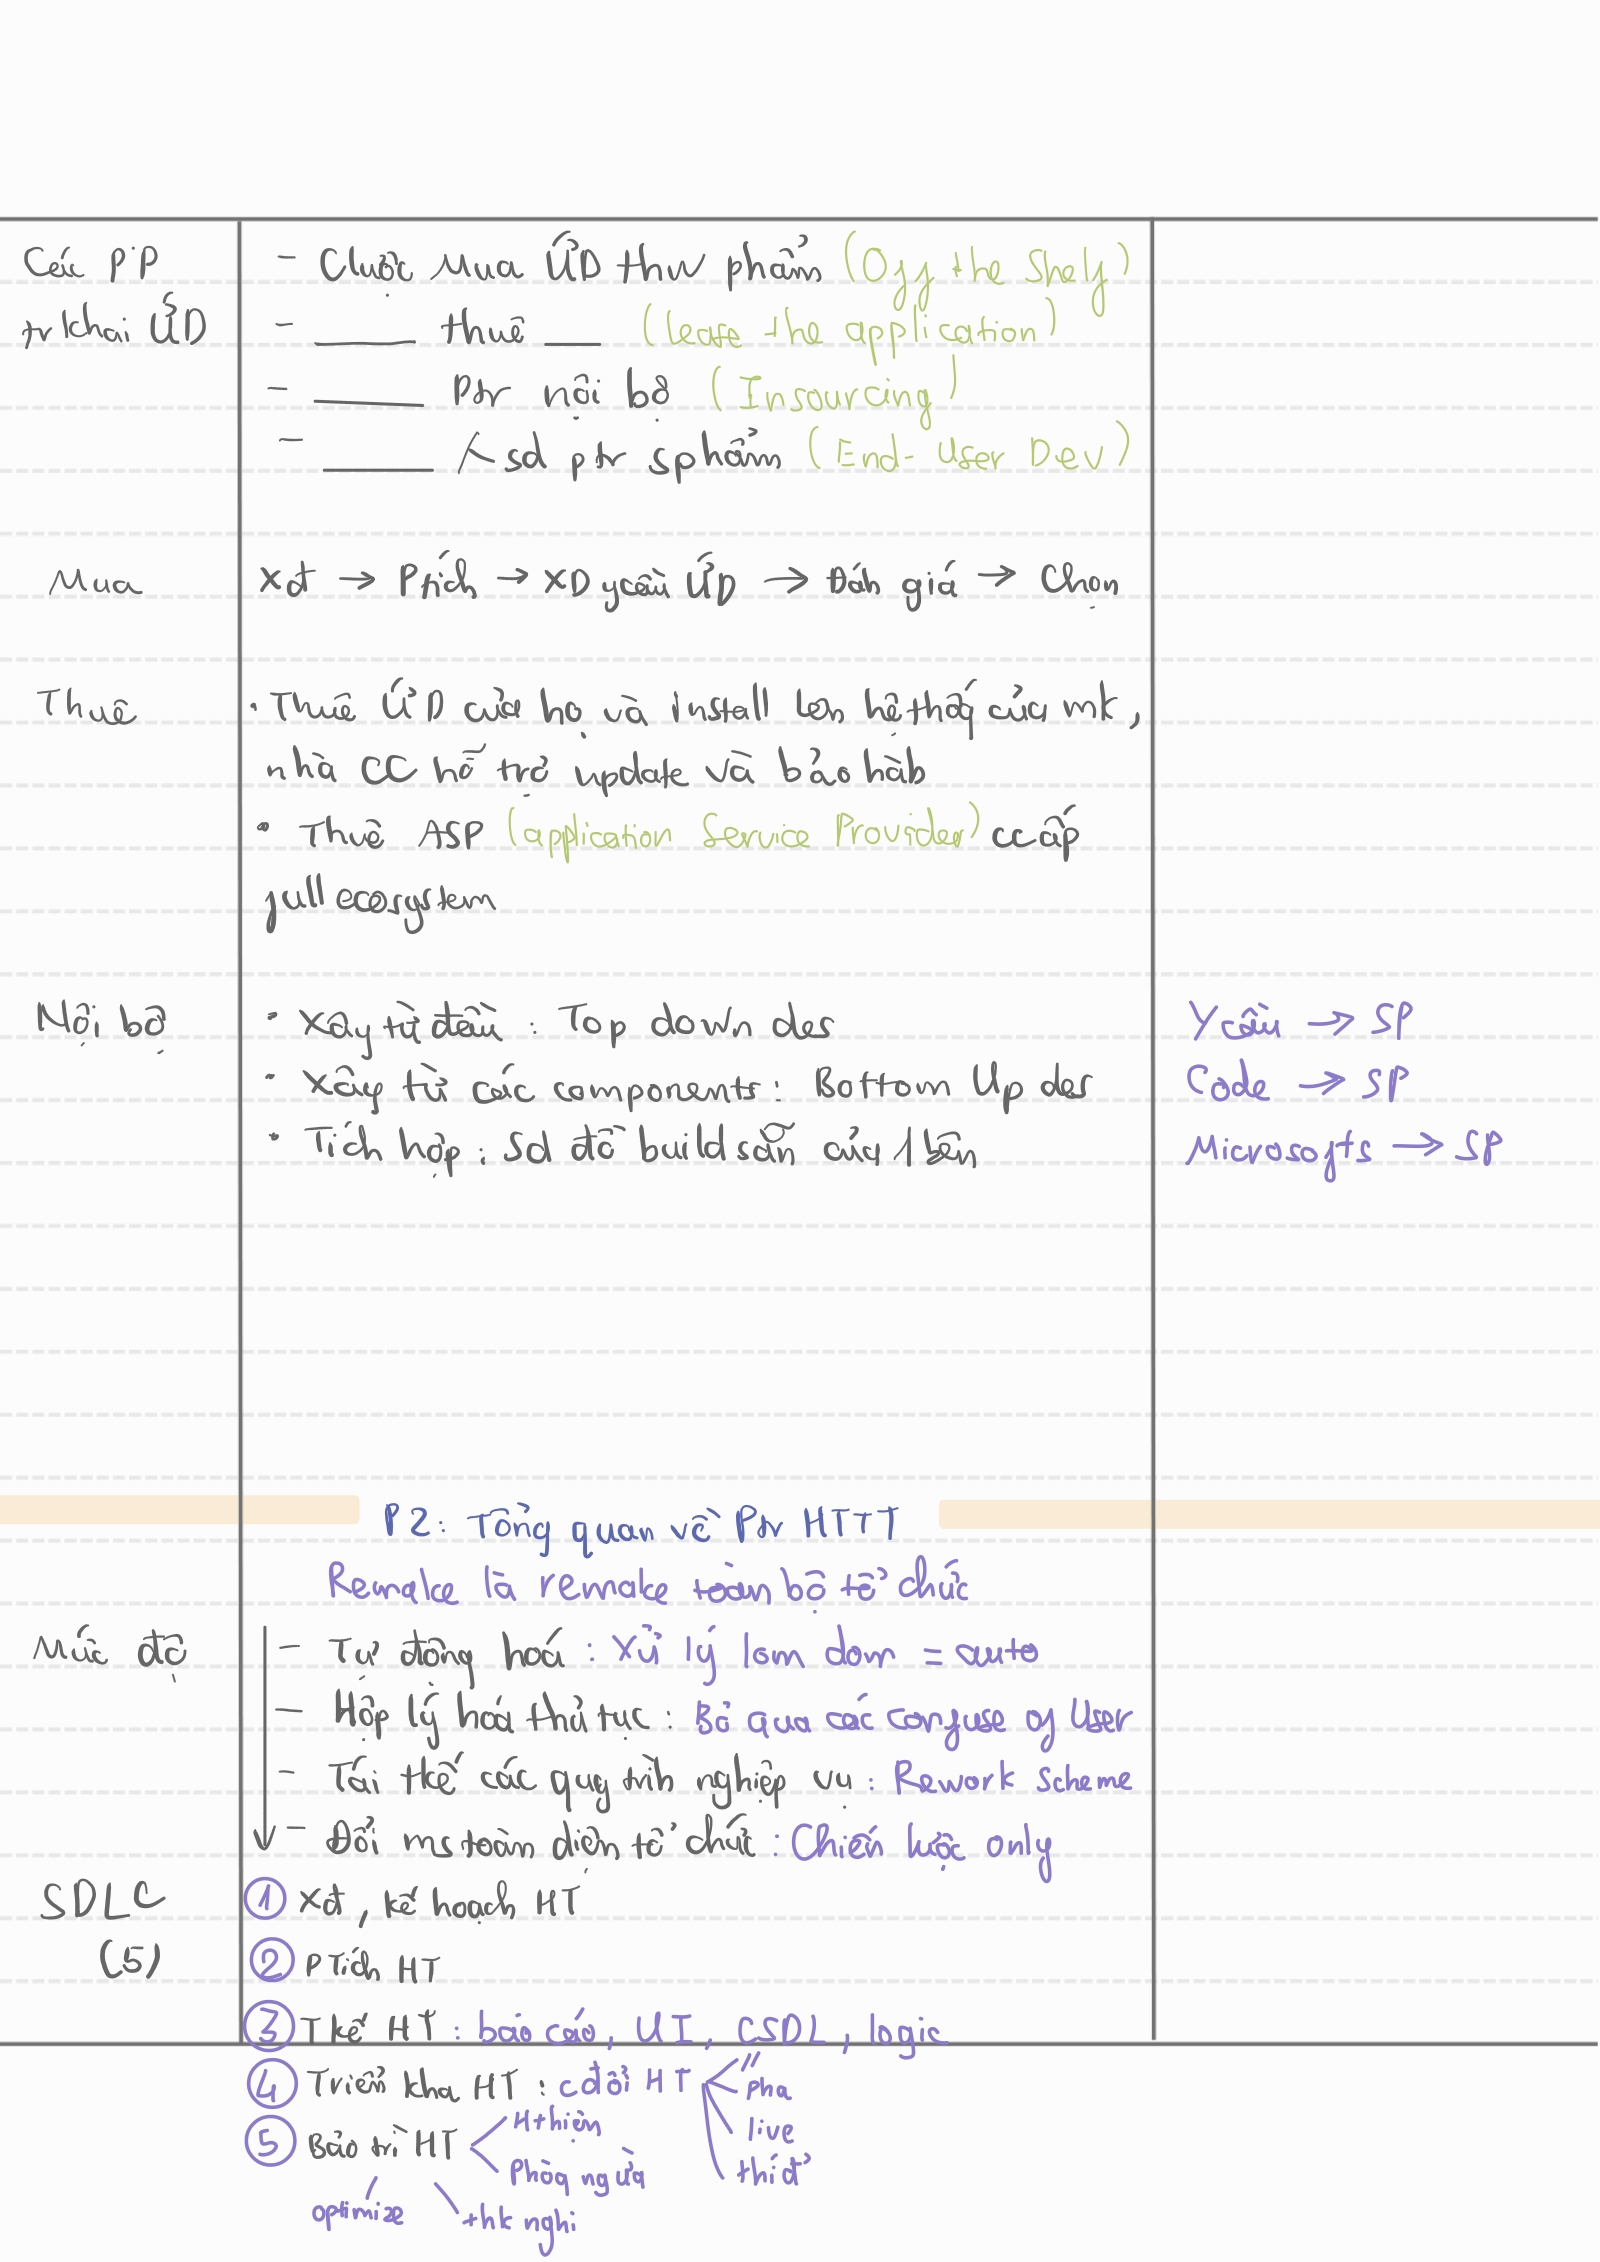 Các PP
tr khai ƯD
- Cluôc Mua ƯD thư phẩm (Off the Shelf)
- ___ thuê ___ (lease the application)
- ___ Ptr nội bộ (Insourcing)
- ___ sd ptr sphẩm (End-User Dev)
Mua
Xđ → Ptích → XD ycầu ƯD → Đáh giá → Chọn
Thuê
• Thuê ƯD của họ và install lên hệ thốg của mk,
nhà CC hỗ trợ update và bảo hàh
• Thuê ASP (application Service Provider) ccấp
full ecosystem
Nội bộ
• Xây từ đầu : Top down des
Ycầu → SP
• Xây từ các components : Bottom Up des
Code → SP
• Tích hợp : Sd đồ build sẵn của 1 bên
Microsofts → SP
P2: Tổng quan về Ptr HTTT
Remake là remake toàn bộ tổ chức
Mức độ
- Tự động hoá : Xử lý lom dom = auto
- Hợp lý hoá thủ tục : Bỏ qua các confuse of User
- Tái tkế các quy trìh nghiệp vụ : Rework Scheme
- Đổi ms toàn diện tổ chức : Chiến lược only
SDLC
(5)
① Xđ, kế hoạch HT
② PTích HT
③ Tkế HT : báo cáo, UI, CSDL, logic
④ Triển kha HT : cđổi HT < //
pha
live
thí đ'
⑤ Bảo trì HT < Hthiện
Phòg ngừa
optimize
thk nghi